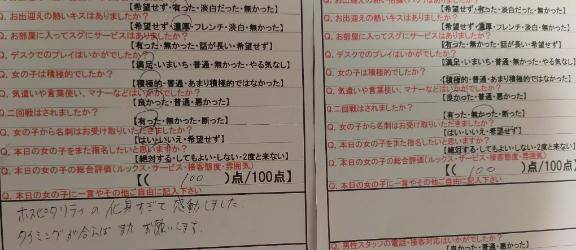 【希望せず・有った・淡白だった・無かった】
Q. お出迎えの熱いキスはありましたか?
【希望せず・濃厚・フレンチ・淡白・無かった】
Q. お部屋に入ってスグにサービスはありましたか?
【有った・無かった・話が長い・希望せず】
Q. デスクでのプレイはいかがでしたか?
【満足・いまいち・普通・無かった・やる気なし】
Q. 女の子は積極的でしたか?
【積極的・普通・あまり積極的ではなかった】
Q. 気遣いや言葉使い、マナーなどはいかがでしたか?
【良かった・普通・悪かった】
Q. 二回戦はされましたか?
【有った・無かった・断った】
Q. 女の子から名刺はお受け取りいただきましたか?
【はい・いいえ・希望せず】
Q. 本日の女の子をまた指名したいと思いますか?
【絶対する・してもよい・しない・2度と来ない】
Q. 本日の女の子の総合評価(ルックス・サービス・接客態度・雰囲気)
【( 100 )点/100点】
Q. 本日の女の子に一言やその他ご自由に記入下さい
ホスピタリティの化身すぎて感動しました
タイミングが合えばまたお願いします。
【希望せず・有った・淡白だった・無かった】
Q. お出迎えの熱いキスはありましたか?
【希望せず・濃厚・フレンチ・淡白・無かった】
Q. お部屋に入ってスグにサービスはありましたか?
【有った・無かった・話が長い・希望せず】
Q. デスクでのプレイはいかがでしたか?
【満足・いまいち・普通・無かった・やる気なし】
Q. 女の子は積極的でしたか?
【積極的・普通・あまり積極的ではなかった】
Q. 気遣いや言葉使い、マナーなどはいかがでしたか?
【良かった・普通・悪かった】
Q. 二回戦はされましたか?
【有った・無かった・断った】
Q. 女の子から名刺はお受け取りいただきましたか?
【はい・いいえ・希望せず】
Q. 本日の女の子をまた指名したいと思いますか?
【絶対する・してもよい・しない・2度と来ない】
Q. 本日の女の子の総合評価(ルックス・サービス・接客態度・雰囲気)
【( 100 )点/100点】
Q. 本日の女の子に一言やその他ご自由に記入下さい
Q. 男性スタッフの電話・接客対応はいかがでしたか?